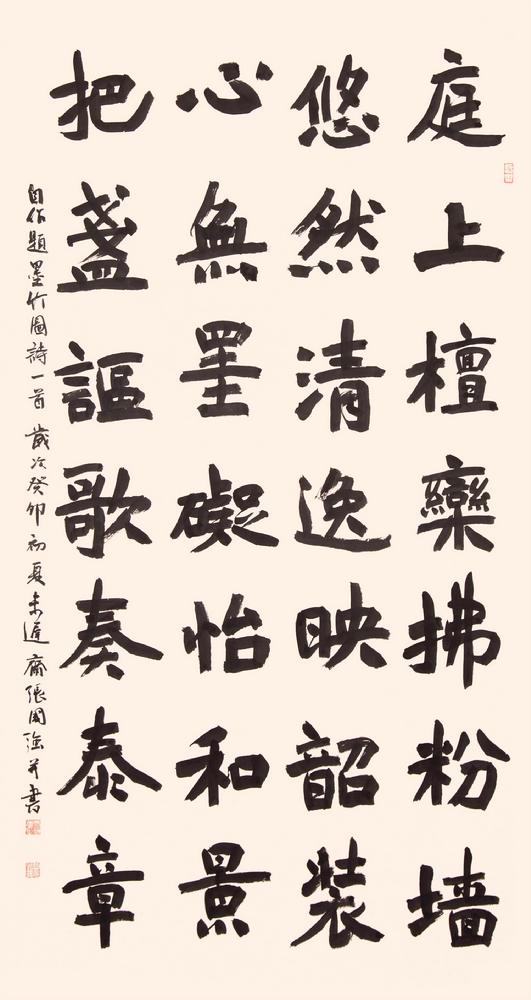 庭上檀欒拂粉墙
悠然清逸映韶装
心無墨礙怡和景
把盏謳歌奏泰章
自作題墨竹圖詩一首 歲次癸卯初夏未遲齋張国強并書